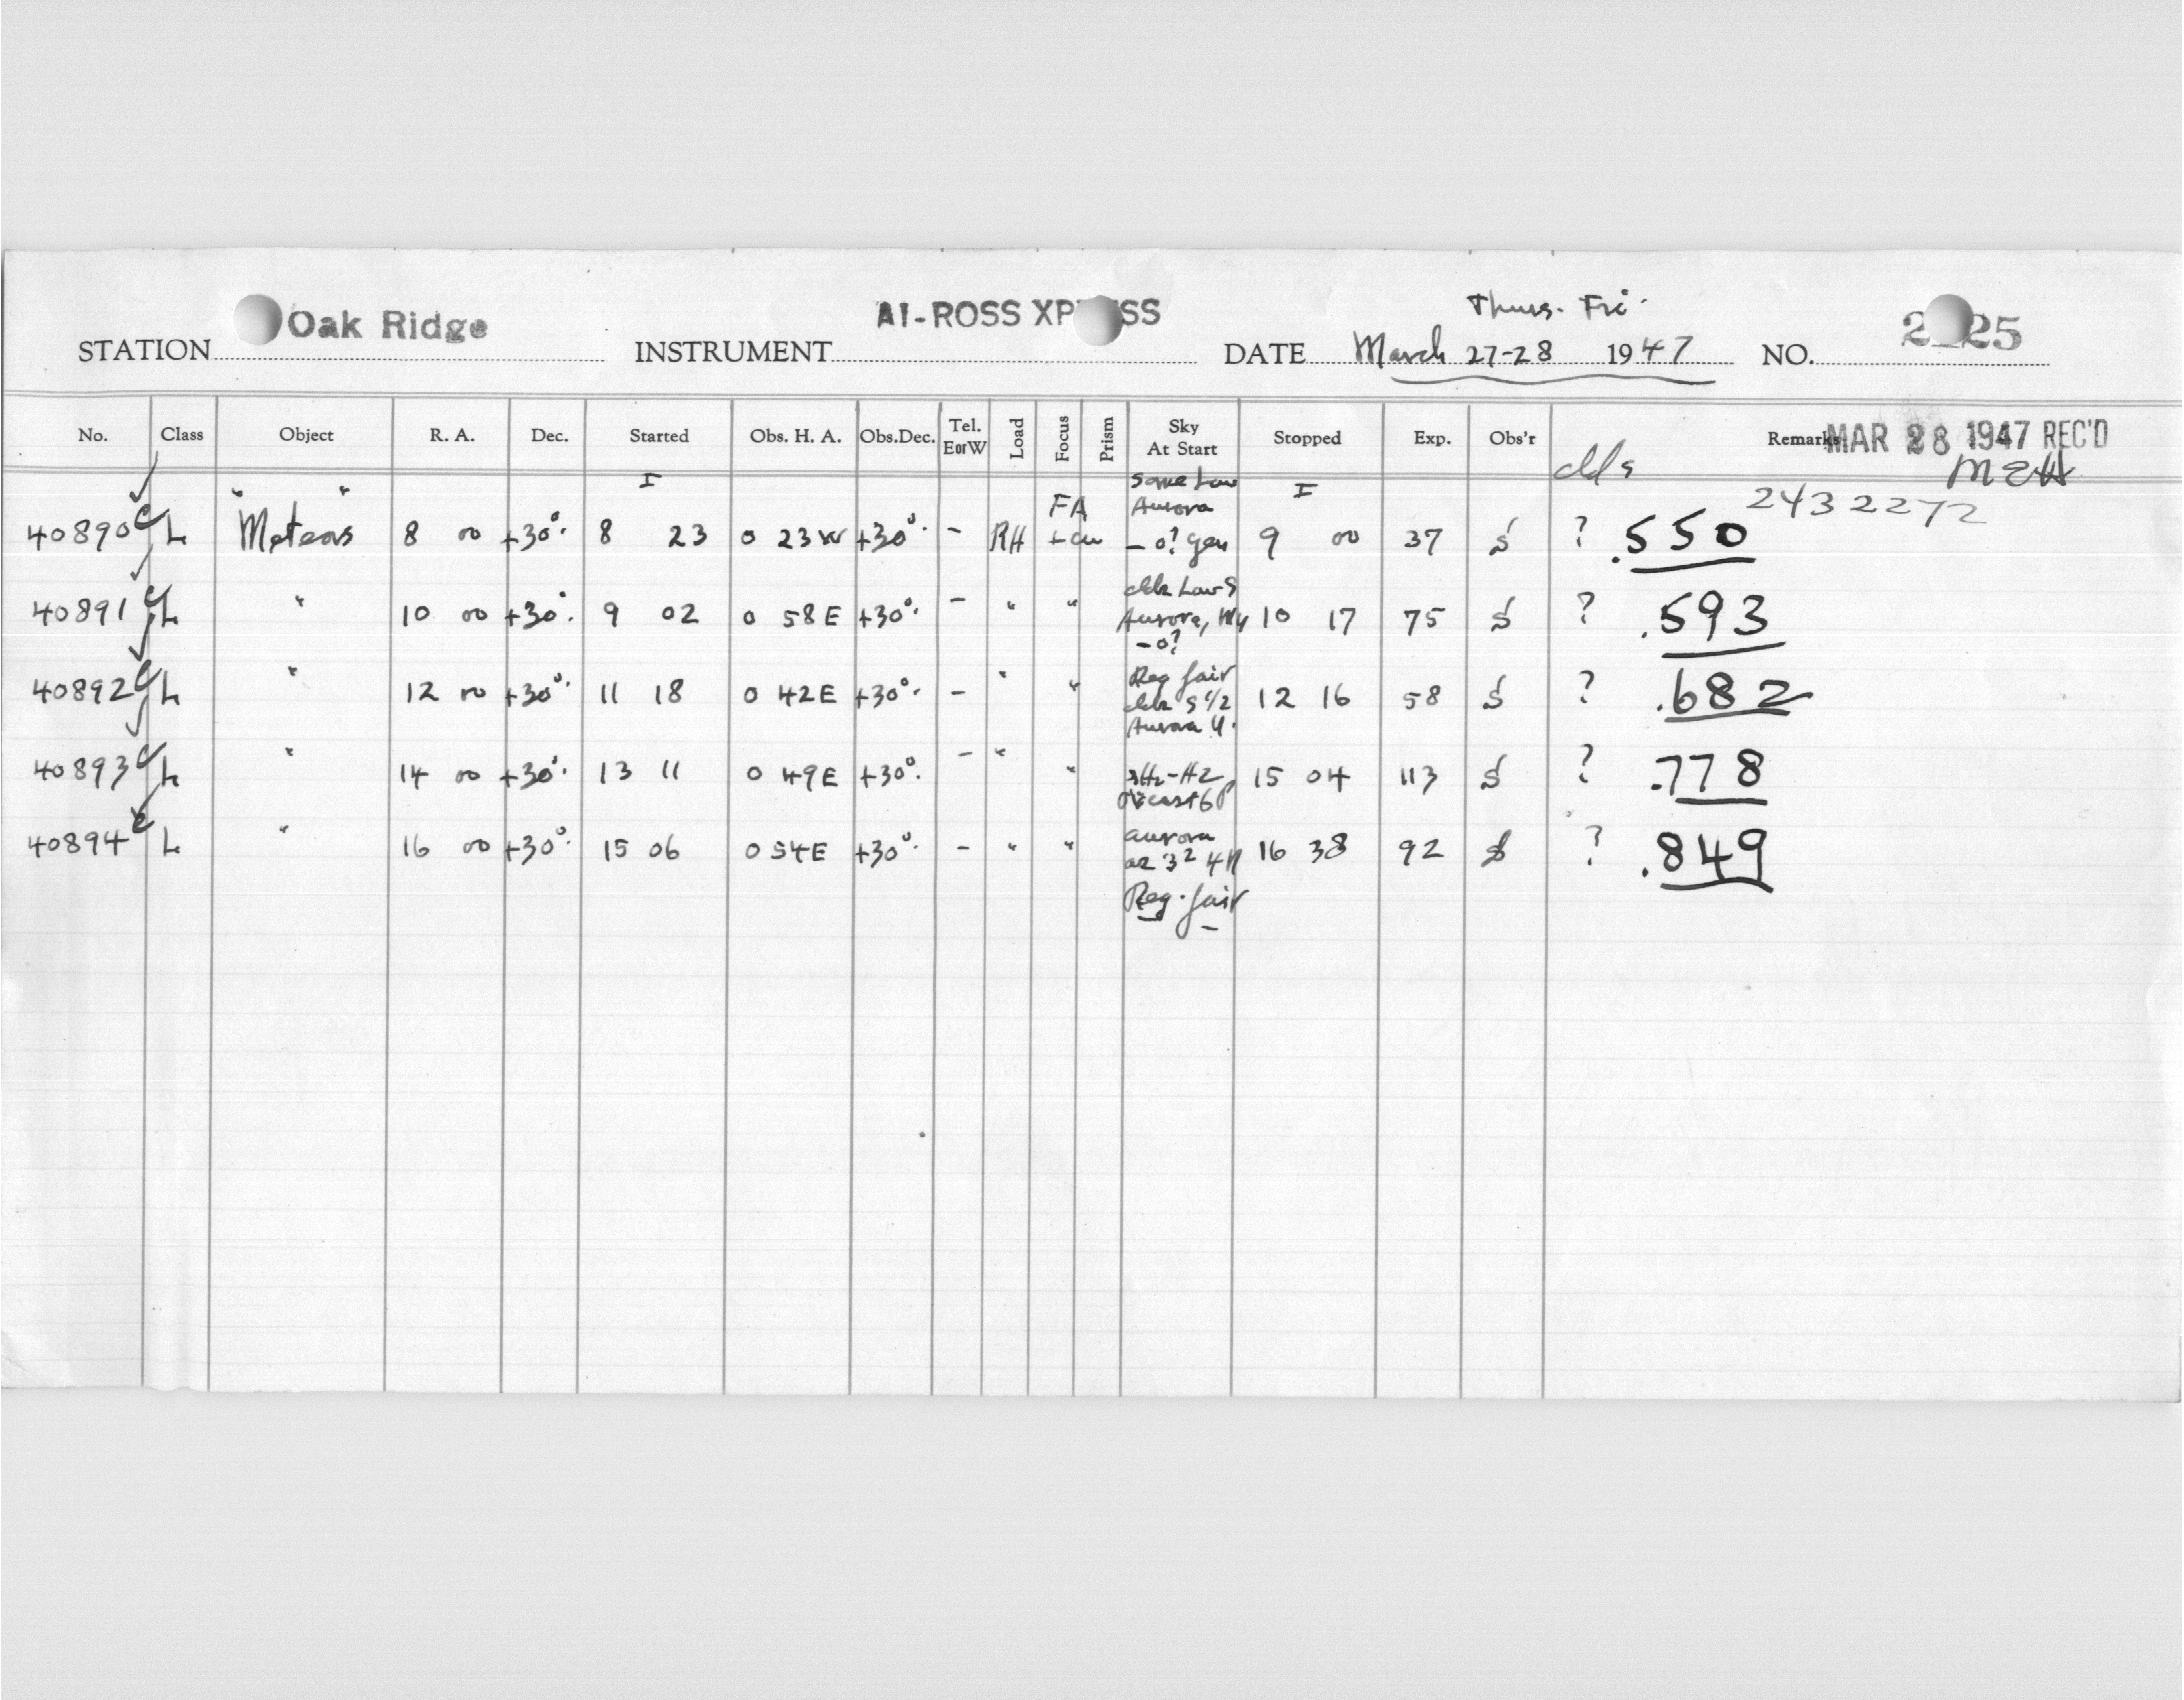 Thurs. Fri.
STATION Oak Ridge INSTRUMENT AI-ROSS XP SS DATE March 27-28 1947 NO. 2 25
No. Class Object R. A. Dec. Started Obs. H. A. Obs. Dec. Tel. E or W Load Focus Prism Sky At Start Stopped Exp. Obs'r Remarks
MAR 28 1947 REC'D
clds MEH
2432272
40890 L "Meteors" 8 00 +30° I 8 23 0 23 W +30° - RH FA Some Low Aurora -0? gen I 9 00 37 S ? .550
40891 L " 10 00 +30° 9 02 0 58 E +30° - " " Low S Aurora, -0? 10 17 75 S ? .593
40892 L " 12 00 +30° 11 18 0 42 E +30° - " " Reg fair S 1/2 Aurora 12 16 58 S ? .682
40893 L " 14 00 +30° 13 11 0 49 E +30° - " " 15 04 113 S ? .778
40894 L " 16 00 +30° 15 06 0 54 E +30° - " " aurora Reg. fair 16 38 92 S ? .849